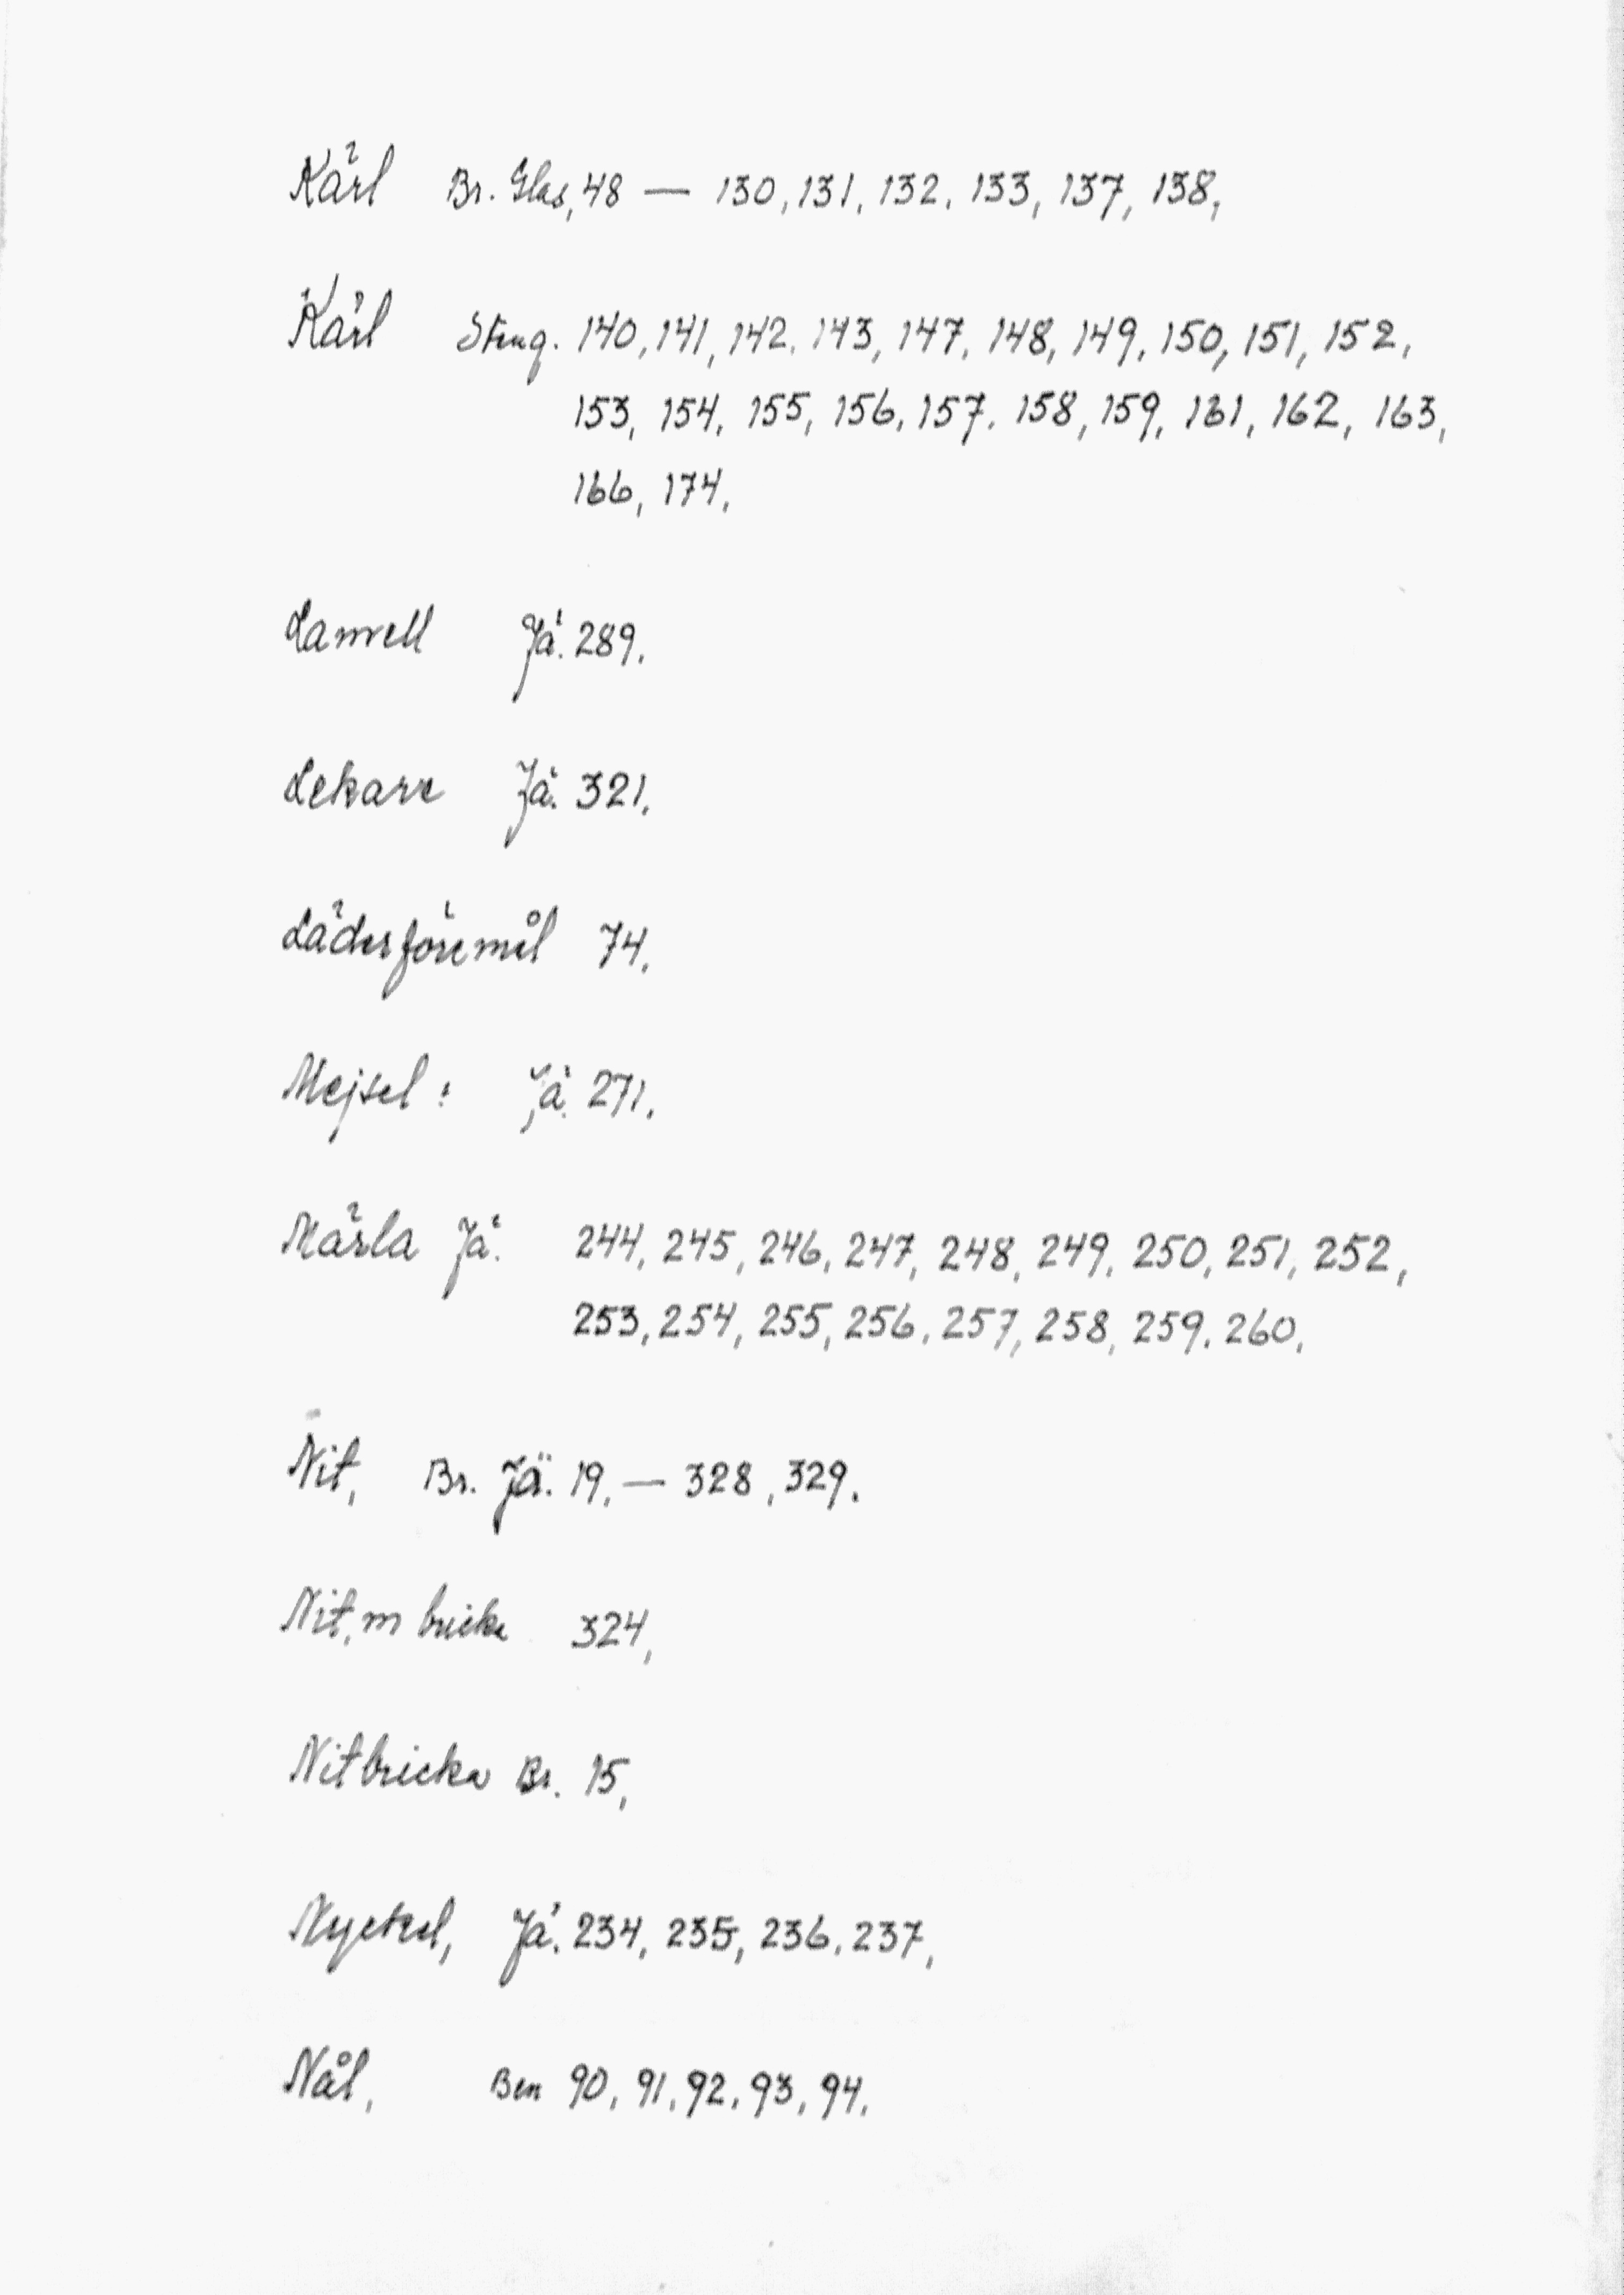 Kärl Br. Glas, 48 — 130, 131, 132, 133, 137, 138,
Kärl Steng. 140, 141, 142, 143, 147, 148, 149, 150, 151, 152,
153, 154, 155, 156, 157, 158, 159, 161, 162, 163,
166, 174,
Jä. 289.
Jä. 321.
Läderföremål 74.
Mejsel: Jä. 271.
Märla Jä. 244, 245, 246, 247, 248, 249, 250, 251, 252,
253, 254, 255, 256, 257, 258, 259, 260,
Nit, Br. Jä. 19, — 328, 329.
Nit, m bricka 324,
Nitbricka Br. 15,
Nyckel, Jä. 234, 235, 236, 237,
Nål, Ben 90, 91, 92, 93, 94,